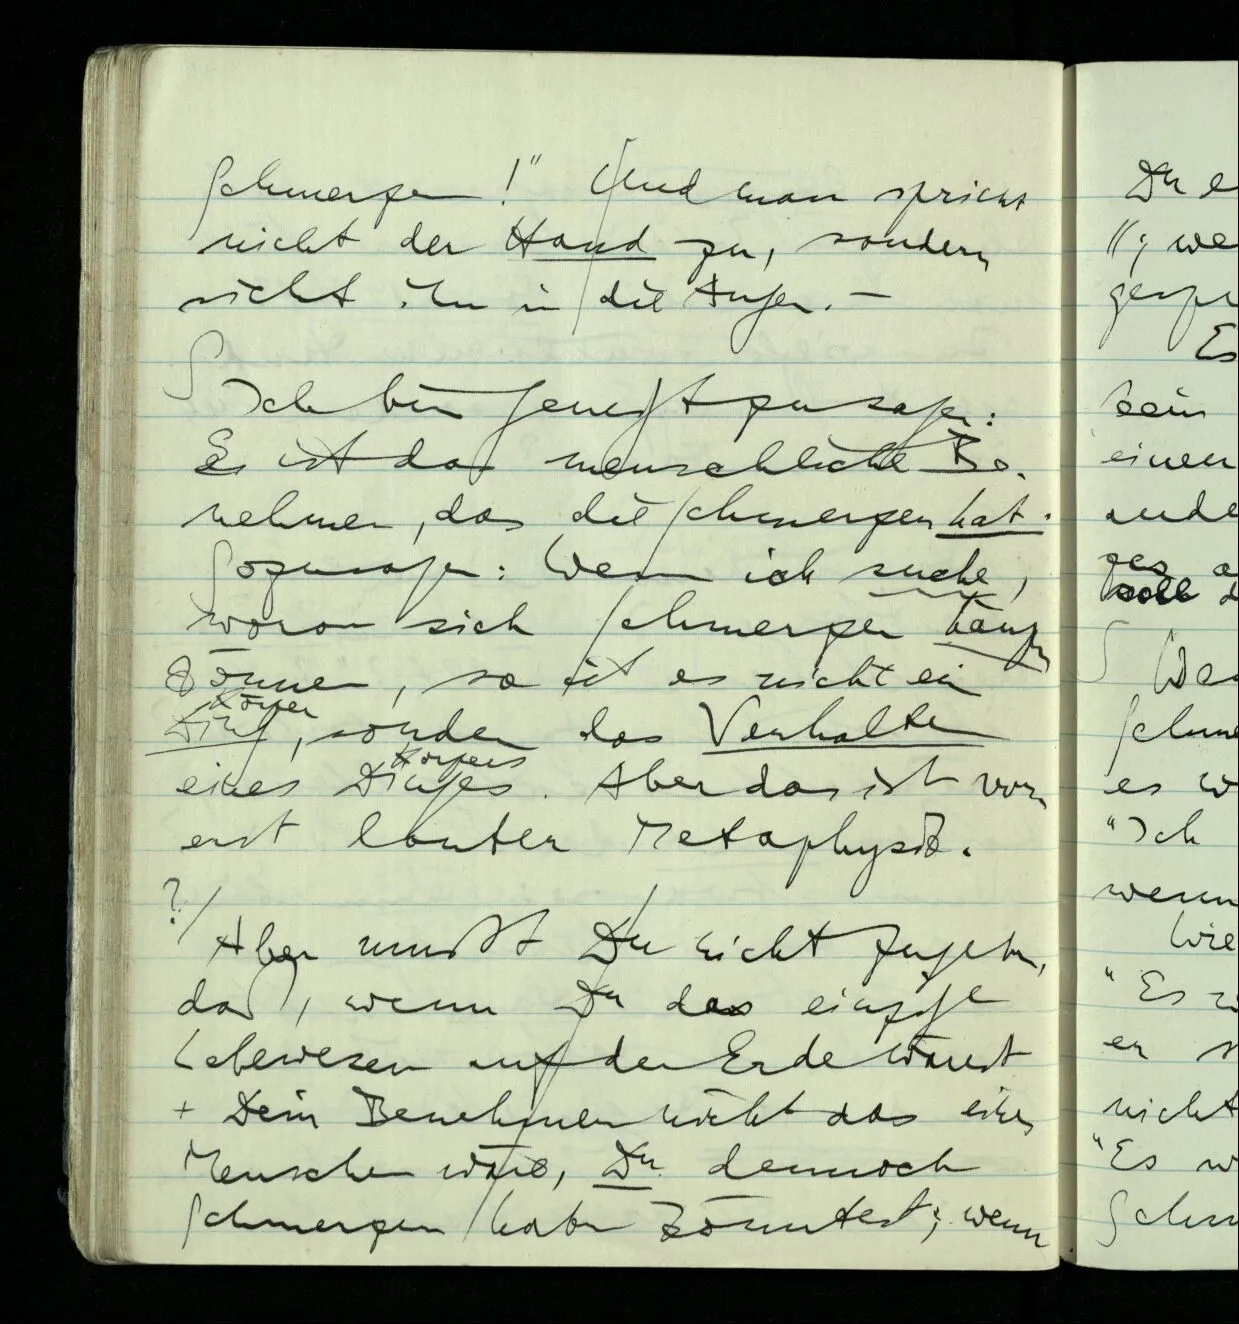 Schmerzen!" Und man spricht
nicht der Hand zu, sondern
sieht ihm in die Augen. –
S Ich bin geneigt zu sagen:
Es ist das menschliche Be-
nehmen, das die Schmerzen hat.
Sozusagen: Wenn ich suche,
woran sich Schmerzen hängen
können, so ist es nicht ein
Körper
Ding, sondern das Verhalten
Körpers
eines Dinges. Aber das ist vor-
erst lauter Metaphysik.
? /
Aber mußt Du nicht zugeben,
daß, wenn Du das einzige
Lebewesen auf der Erde wärest
+ Dein Benehmen nicht das eines
Menschen wäre, Du dennoch
Schmerzen haben könntest; wenn
Du
"; we
gespr
Es
kein
einen
ande
soll
S We
Schme
es w
"Ich
wenn
Wie
"Es
er
nicht
"Es w
Schm